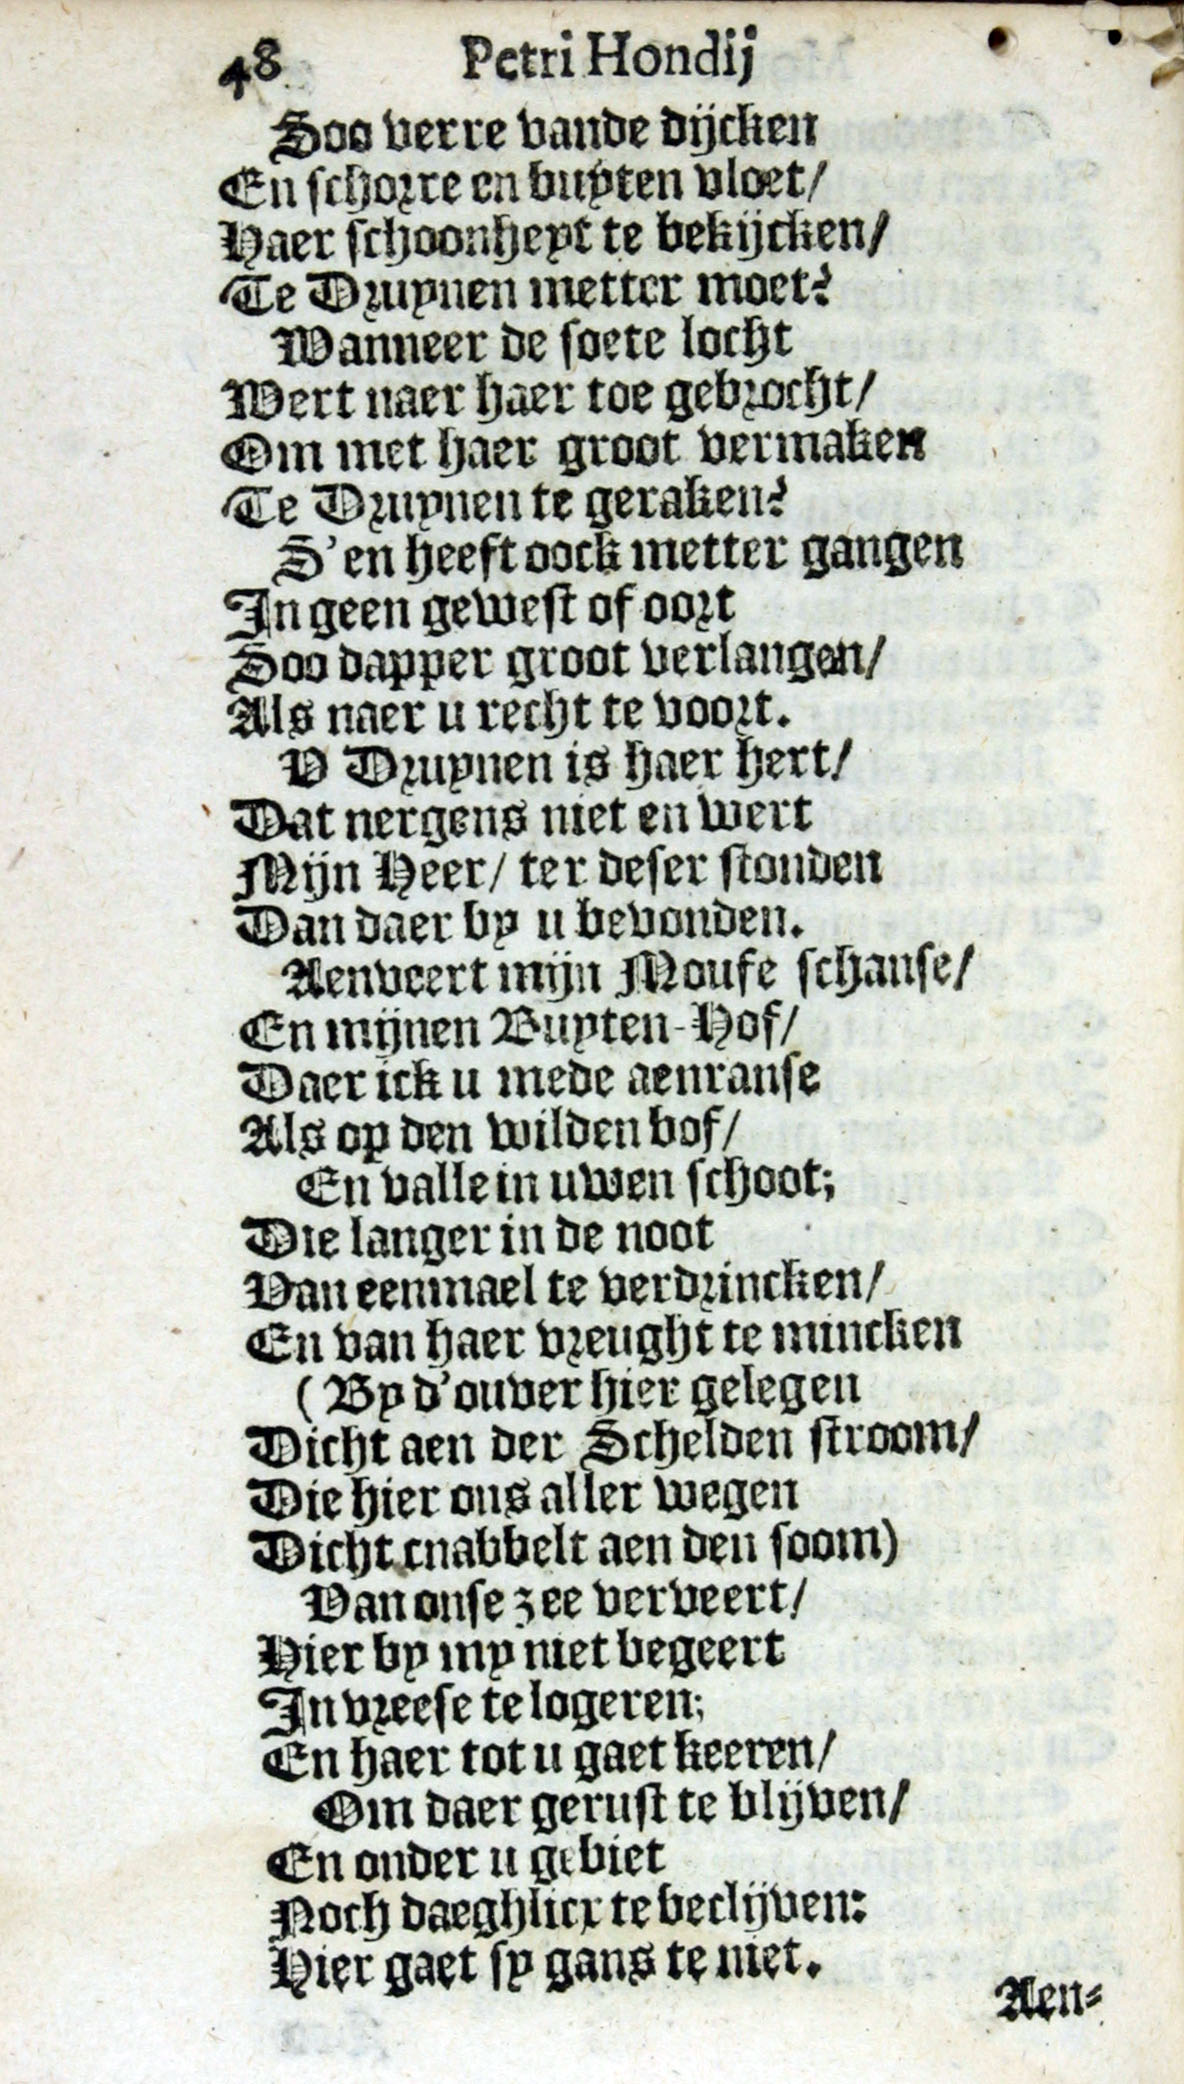 48 Petri Hondij
Soo verre vande dijcken
En schorre en buyten vloet/
Haer schoonheyt te bekijcken/
Te Druynen metter moet?
Wanneer de soete locht
Wert naer haer toe gebrocht/
Om met haer groot vermaken
Te Druynen te geraken?
S'en heeft oock metter gangen
In geen gewest of oort
Soo dapper groot verlangen/
Als naer u recht te voort.
V Druynen is haer hert/
Dat nergens niet en wert
Mijn Heer/ ter deser stonden
Dan daer by u bevonden.
Aenveert mijn Moufe schanse/
En mijnen Buyten-Hof/
Daer ick u mede aenranse
Als op den wilden bof/
En valle in uwen schoot;
Die langer in de noot
Van eenmael te verdrincken/
En van haer vreught te mincken
(By d'ouver hier gelegen
Dicht aen der Schelden stroom/
Die hier ons aller wegen
Dicht cnabbelt aen den soom)
Van onse zee verveert/
Hier by my niet begeert
In vreese te logeren;
En haer tot u gaet keeren/
Om daer gerust te blijven/
En onder u gebiet
Noch daeghlicx te beclijven:
Hier gaet sy gans te niet.
Aen-